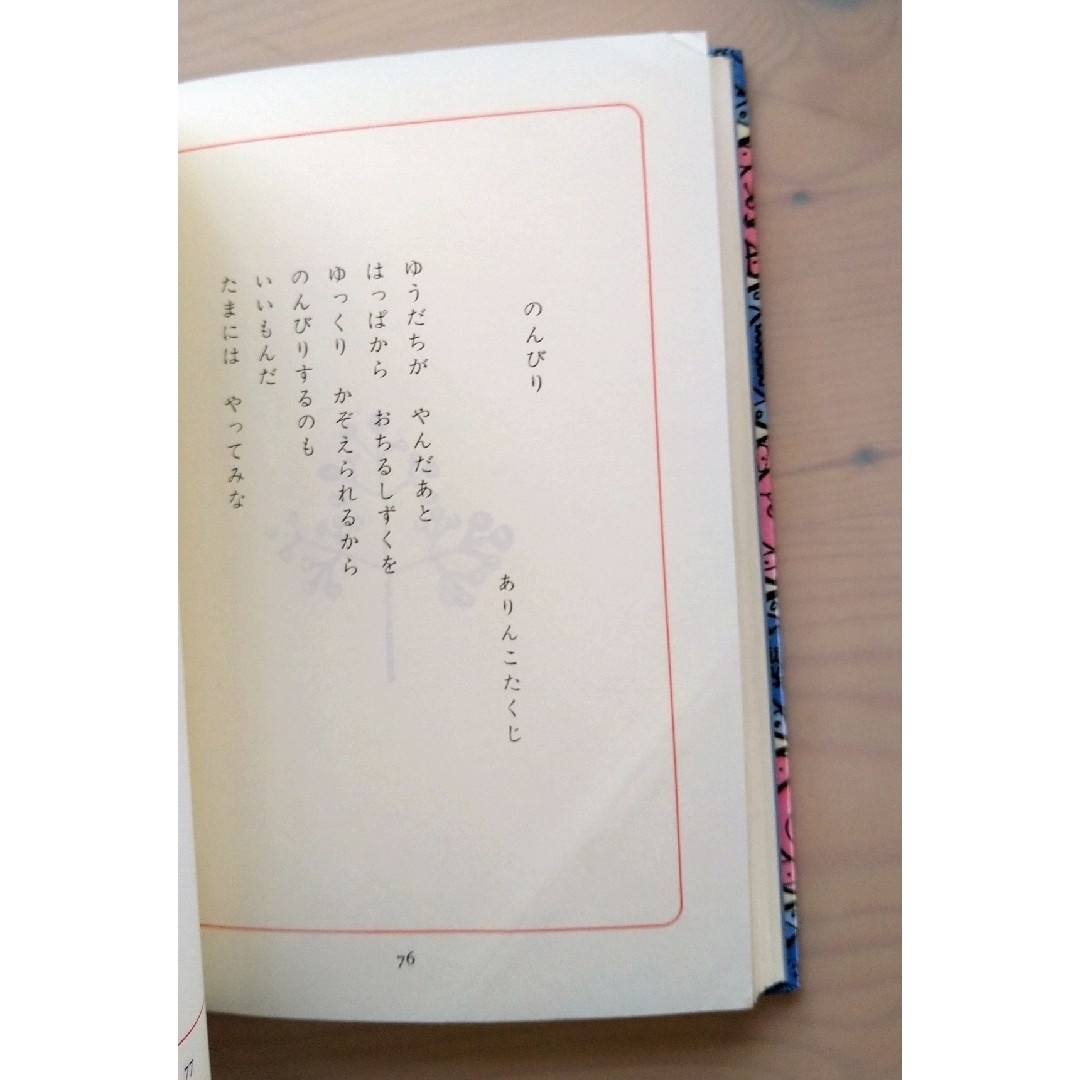 のんびり
ありんこたくじ
ゆうだちが　やんだあと
はっぱから　おちるしずくを
ゆっくり　かぞえられるから
のんびりするのも
いいもんだ
たまには　やってみな
76
77